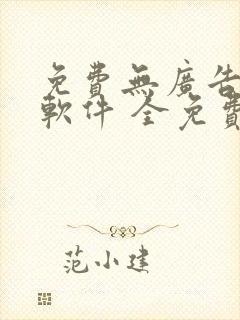 免費無廣告
軟件 全免費
范小建